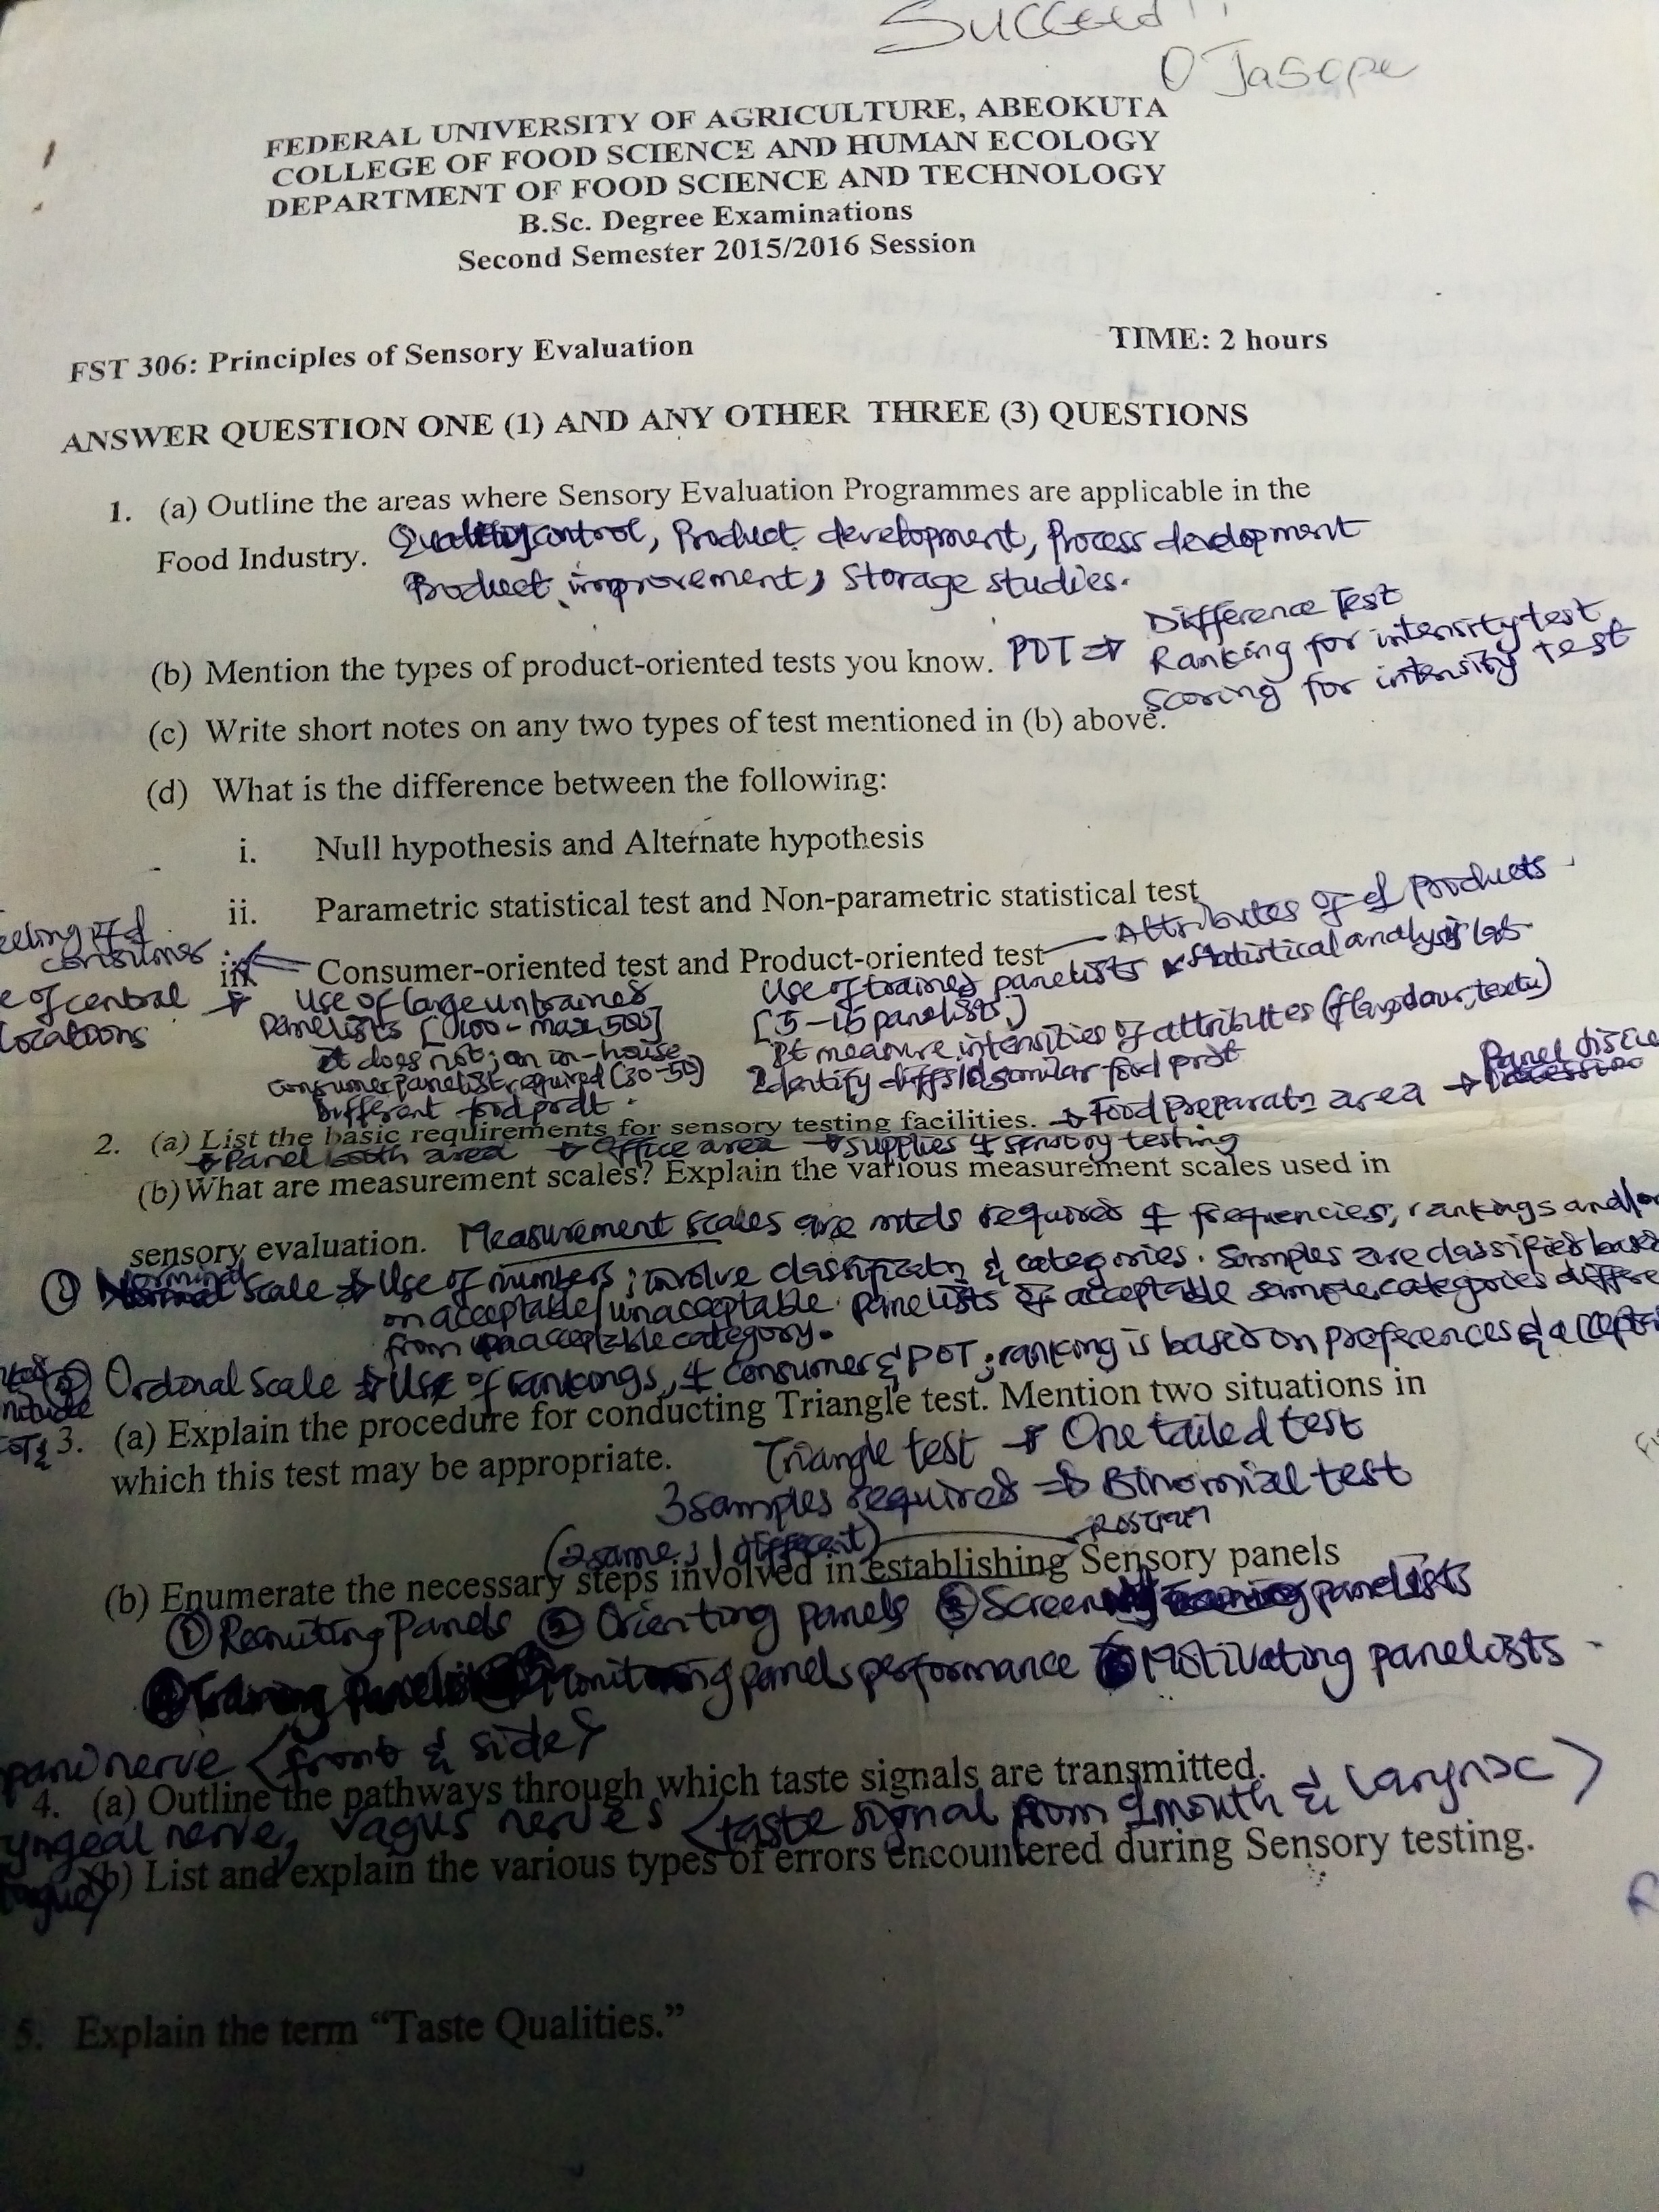 Succeed!!
O Jasope
FEDERAL UNIVERSITY OF AGRICULTURE, ABEOKUTA
COLLEGE OF FOOD SCIENCE AND HUMAN ECOLOGY
DEPARTMENT OF FOOD SCIENCE AND TECHNOLOGY
B.Sc. Degree Examinations
Second Semester 2015/2016 Session
FST 306: Principles of Sensory Evaluation TIME: 2 hours
ANSWER QUESTION ONE (1) AND ANY OTHER THREE (3) QUESTIONS
1. (a) Outline the areas where Sensory Evaluation Programmes are applicable in the
Food Industry. Quality control, Product development, Process development
Product improvement, Storage studies.
(b) Mention the types of product-oriented tests you know. PDT ⇒ Difference Test
Ranking for intensity test
Scoring for intensity test
(c) Write short notes on any two types of test mentioned in (b) above.
(d) What is the difference between the following:
i. Null hypothesis and Alternate hypothesis
ii. Parametric statistical test and Non-parametric statistical test
Attributes of products
iii Consumer-oriented test and Product-oriented test
locations
Use of large untrained
panelists [100 - max 500]
it does not; an in-house
consumer panelist required (30-50)
Different food prodt.
Use of trained panelists
Statistical analysis
[5-15 panelists]
It measure intensities of attributes
Identify diffs similar food prdt
2. (a) List the basic requirements for sensory testing facilities. → Food preparatn area →
→ Panel booth area → Office area → Supplies 4 sensory testing
(b) What are measurement scales? Explain the various measurement scales used in
sensory evaluation. Measurement scales are mtds required 4 frequencies, rankings and/or
① Norminal Scale → Use of numbers; involve classificatn & categories. Samples are classified based
on acceptable/unacceptable. Panelists of acceptable sample categories differ
from unacceptable category.
② Ordinal Scale → Use of rankings, 4 consumer & POT; ranking is based on preferences &
3. (a) Explain the procedure for conducting Triangle test. Mention two situations in
which this test may be appropriate. Triangle test → One tailed test
3 samples required ⇒ Binomial test
(2 same; 1 different)
(b) Enumerate the necessary steps involved in establishing Sensory panels
① Recruiting Panels ② Orienting panels ③ Screening panelists
Monitoring panels performance Motivating panelists
nerve <front & side>
4. (a) Outline the pathways through which taste signals are transmitted.
nerve, Vagus nerves <taste signal from mouth & larynx>
(b) List and explain the various types of errors encountered during Sensory testing.
5. Explain the term “Taste Qualities.”